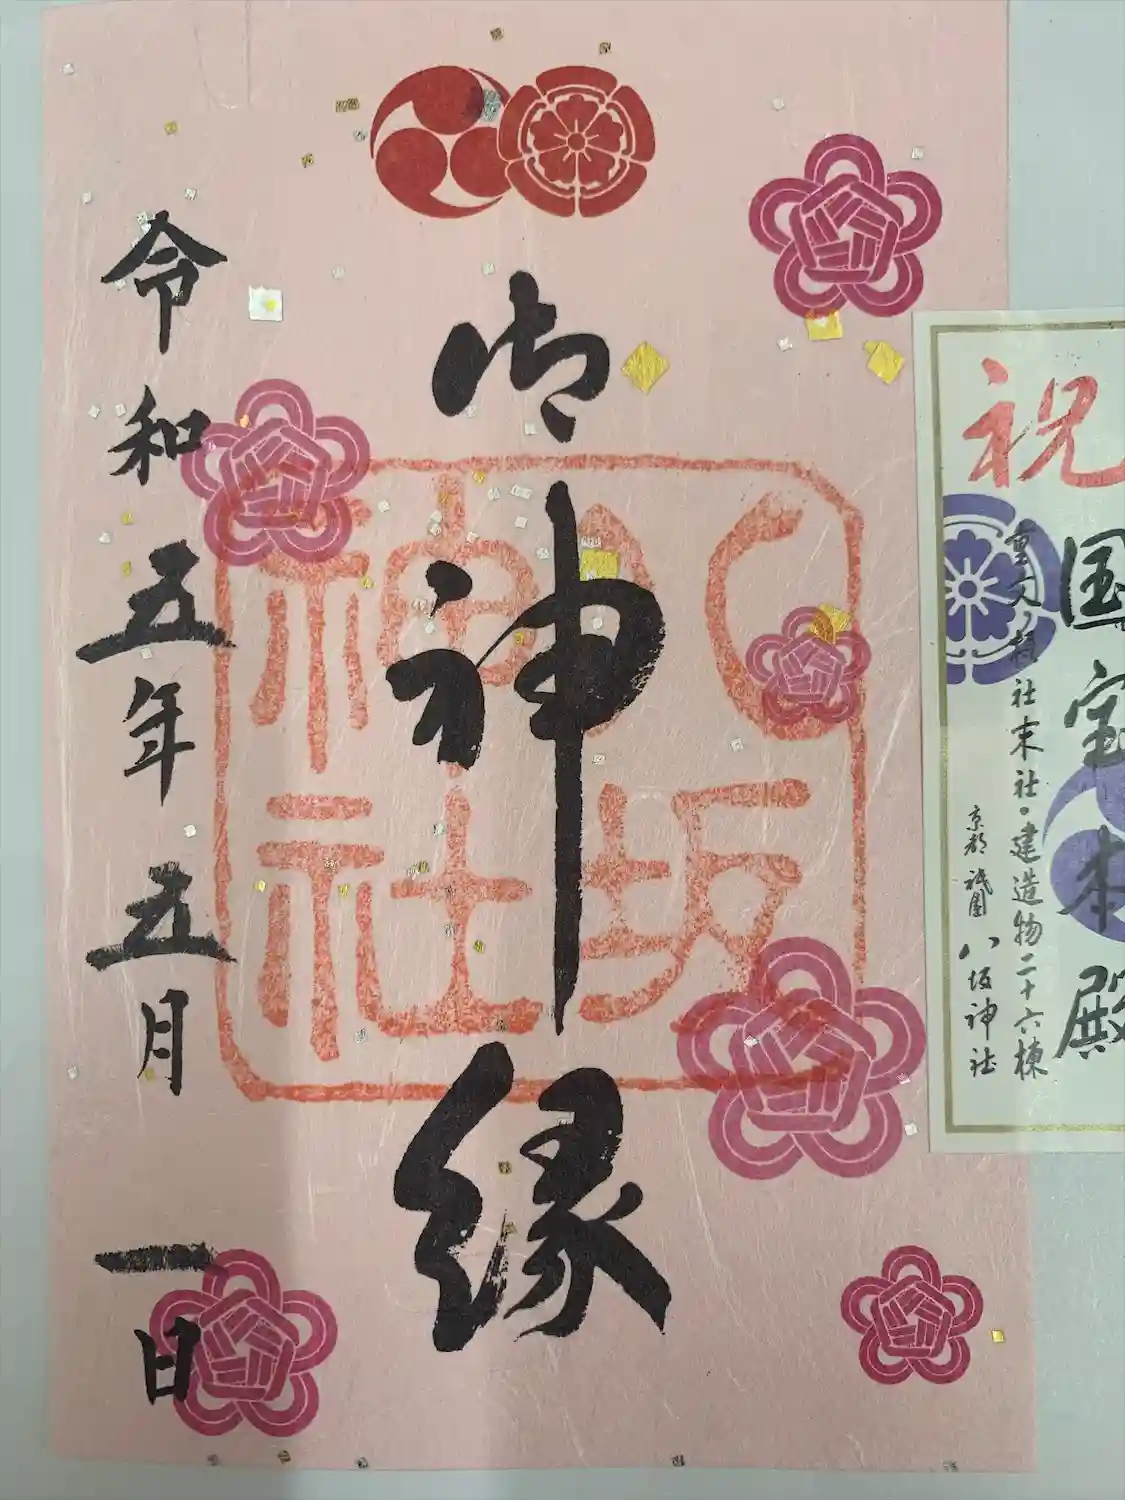 祝
国宝本殿
重文・摂社末社・建造物二十六棟
京都祇園八坂神社
御神縁
八坂神社
令和五年五月一日